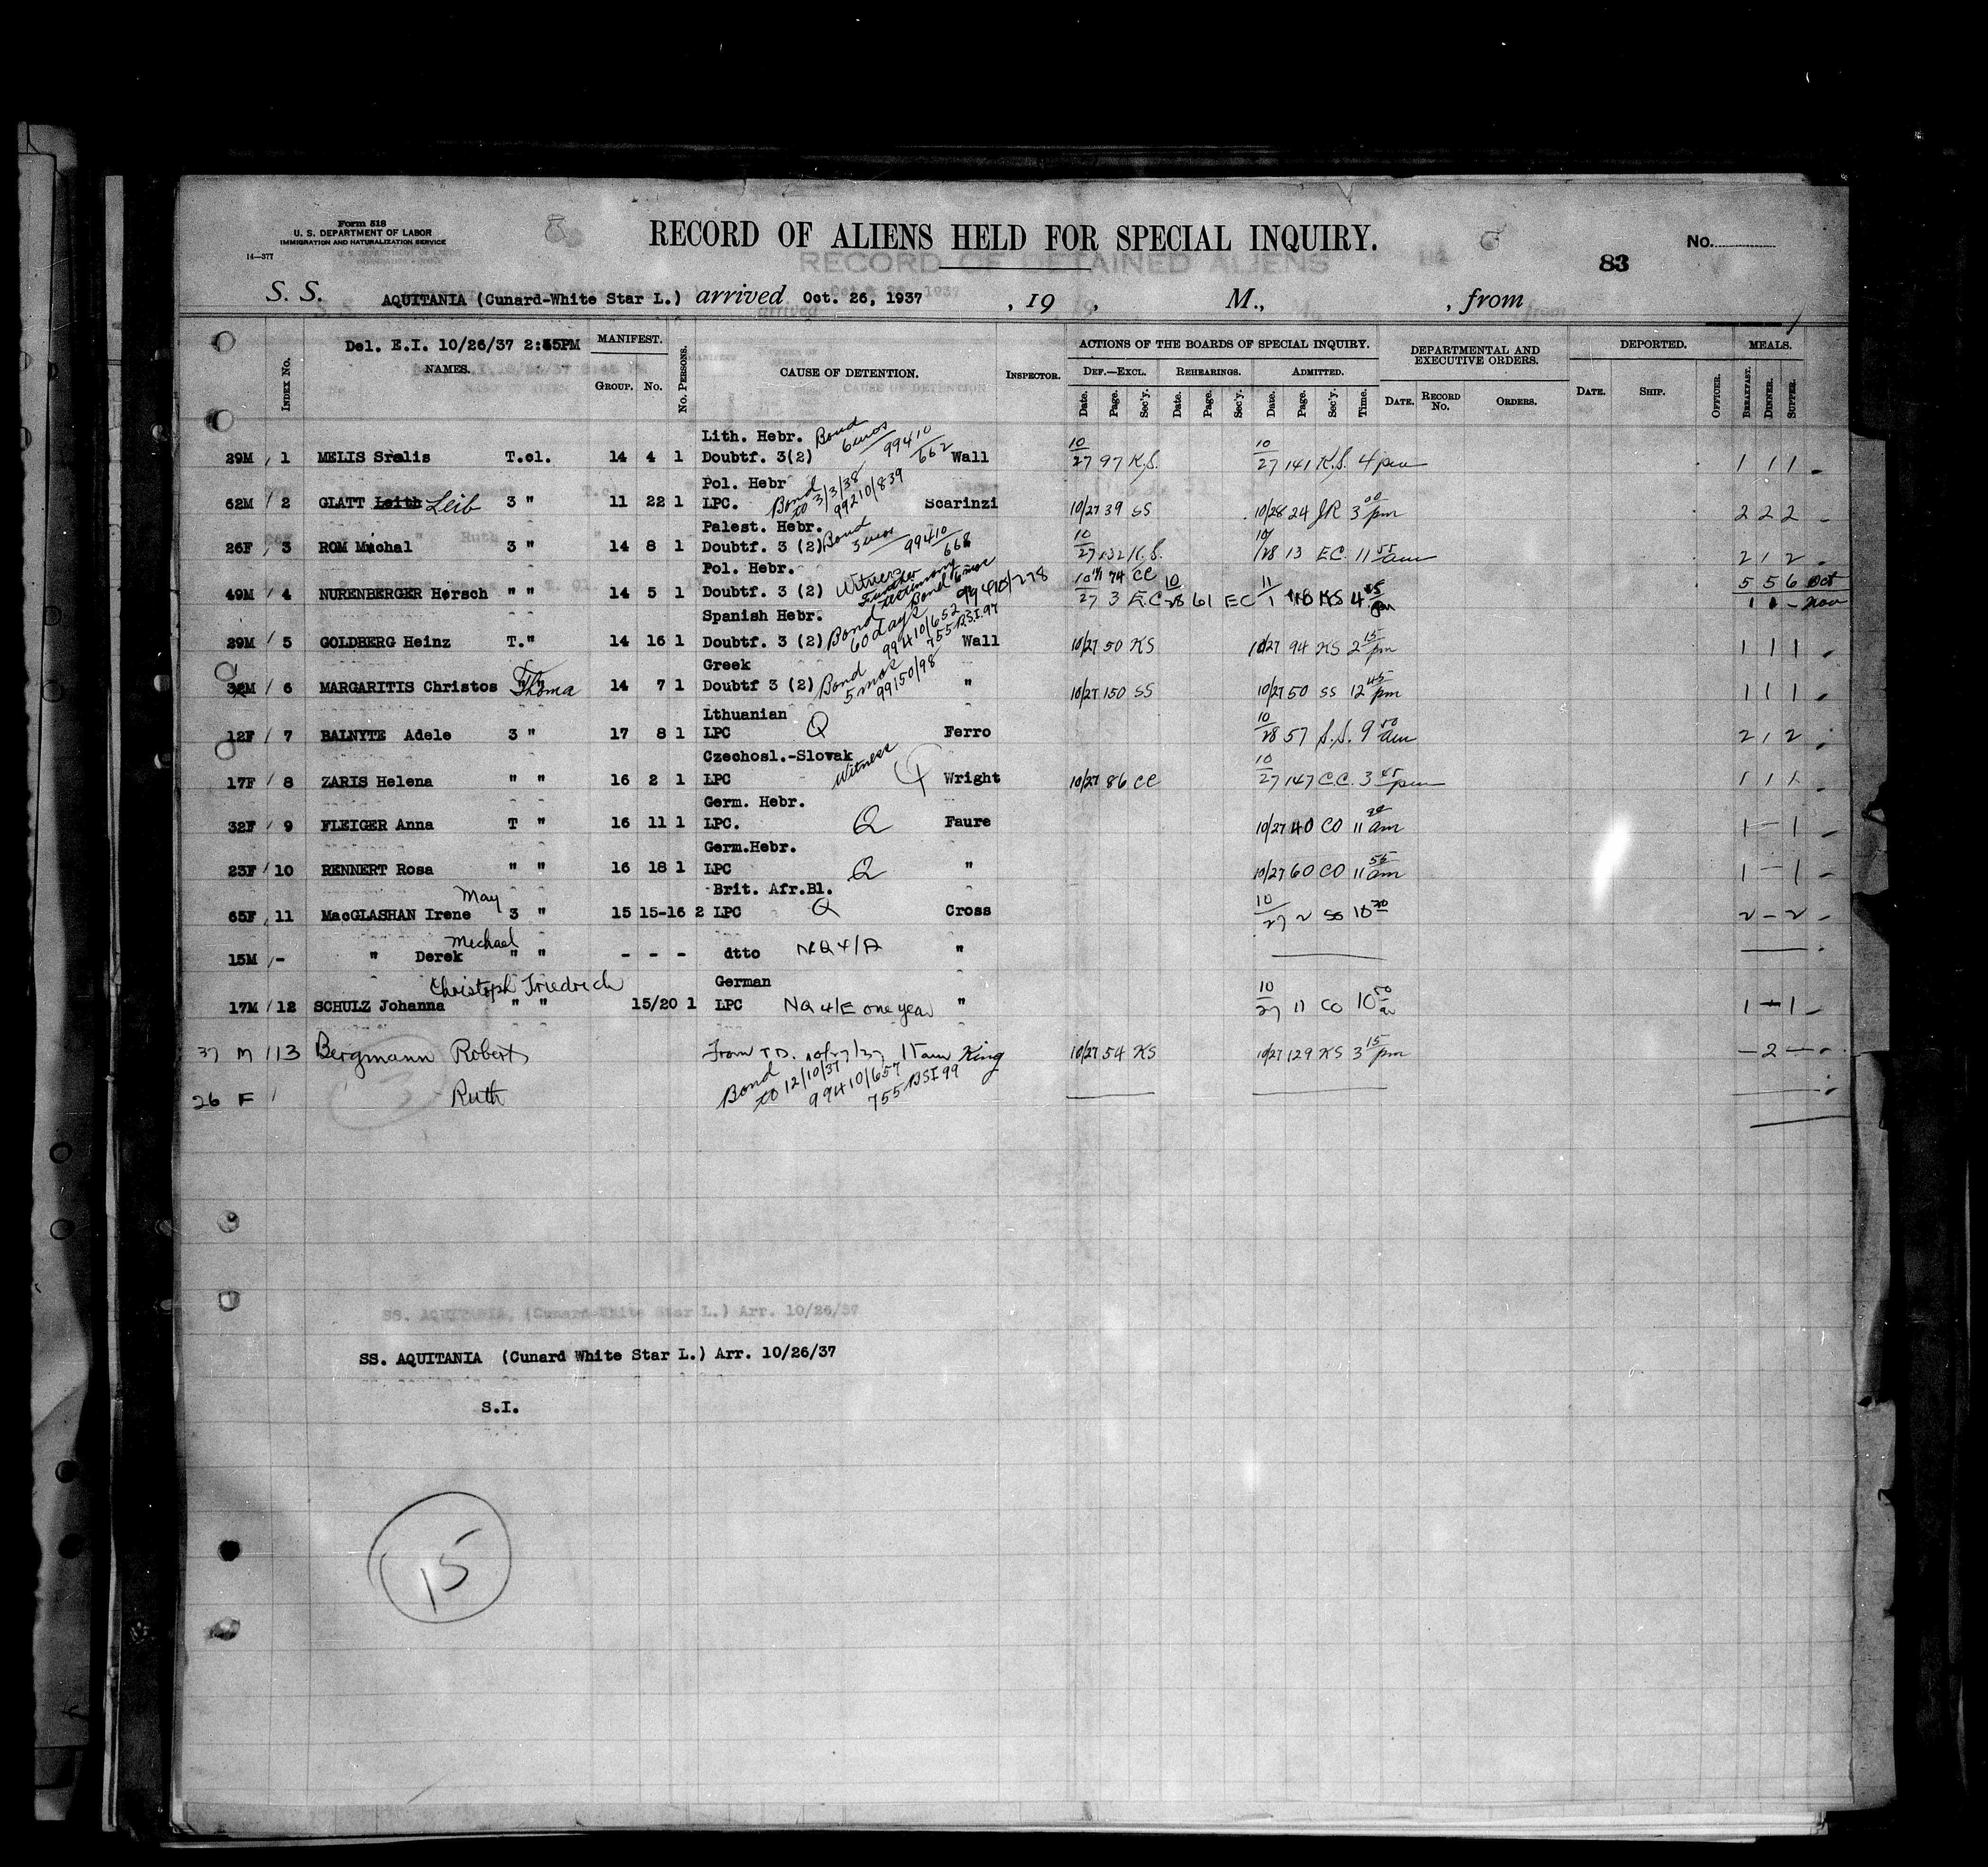 Form 518
U. S. DEPARTMENT OF LABOR
IMMIGRATION AND NATURALIZATION SERVICE
14—377
RECORD OF ALIENS HELD FOR SPECIAL INQUIRY.
RECORD OF DETAINED ALIENS
No.
83
S. S. AQUITANIA (Cunard-White Star L.) arrived Oct. 26, 1937 , 19 , M., , from
Del. E.I. 10/26/37 2:55PM
INDEX No. NAMES. MANIFEST. GROUP. No. No. PERSONS. CAUSE OF DETENTION. INSPECTOR.
ACTIONS OF THE BOARDS OF SPECIAL INQUIRY. DEF.—EXCL. REHEARINGS. ADMITTED.
Date. Page. Sec'y. Date. Page. Sec'y. Date. Page. Sec'y. Time.
DEPARTMENTAL AND EXECUTIVE ORDERS. DATE. RECORD No. ORDERS.
DEPORTED. DATE. SHIP. OFFICER.
MEALS. BREAKFAST. DINNER. SUPPER.
Lith. Hebr. Bond 6 mos 99410/662
29M 1 MELIS Sralis T.cl. 14 4 1 Doubtf. 3(2) Wall 10/27 97 K.S. 10/27 141 K.S. 4 pm 1 1 1
Pol. Hebr Bond to 3/3/38 99210/839
62M 2 GLATT Leith Leib 3 " 11 22 1 LPC. Scarinzi 10/27 39 SS 10/28 24 JR 3 00 pm 2 2 2
Palest. Hebr. Bond 3 mos 99410/668
26F 3 ROM Michal 3 " 14 8 1 Doubtf. 3 (2) 10/27 132 K.S. 10/28 13 EC. 11 55 am 2 1 2
Pol. Hebr. Witness Further testimony Bond 6 mos 99410/278
49M 4 NURENBERGER Hersch " " 14 5 1 Doubtf. 3 (2) 10/27 3 E.C 74 CC 10/28 61 EC 11/1 KS 4 5 5 6 Oct
1 1 - Nov
Spanish Hebr. Bond 60 days 99410/652 755 B.S.I. 97
29M 5 GOLDBERG Heinz T." 14 16 1 Doubtf. 3 (2) Wall 10/27 50 KS 10/27 94 KS 2 15 pm 1 1 1
Greek Bond 5 mos 99150/98
M 6 MARGARITIS Christos Thoma 14 7 1 Doubtf 3 (2) " 10/27 150 SS 10/27 50 SS 12 45 pm 1 1 1
Lthuanian
12F 7 BALNYTE Adele 3 " 17 8 1 LPC Q Ferro 10/28 57 S.S. 9 50 am 2 1 2
Czechosl.-Slovak Witness
17F 8 ZARIS Helena " " 16 2 1 LPC Wright 10/27 86 CC 10/27 147 C.C. 3 45 pm 1 1 1
Germ. Hebr.
32F 9 FLEIGER Anna T " 16 11 1 LPC. Q Faure 10/27 40 CO 11 am 1 — 1
Germ.Hebr.
23F 10 RENNERT Rosa " " 16 18 1 LPC Q " 10/27 60 CO 11 55 am 1 — 1
May Brit. Afr.Bl.
65F 11 MacGLASHAN Irene 3 " 15 15-16 2 LPC Q Cross 10/27 2 SS 10 20 2 — 2
Michael
15M - " Derek " " - - - dtto NQ 4/A "
Christoph Friedrich German
17M 12 SCHULZ Johanna " " 15/20 1 LPC NQ 4/E one year " 10/27 11 CO 10 50 1 — 1
37 M 13 Bergmann Robert From T.D. 10/27/37 11 am King 10/27 54 KS 10/27 129 KS 3 15 pm — 2 —
26 F Ruth Bond to 12/10/37 99410/657 755 BSI 99
SS. AQUITANIA, (Cunard-White Star L.) Arr. 10/26/37
SS. AQUITANIA (Cunard White Star L.) Arr. 10/26/37
S.I.
15